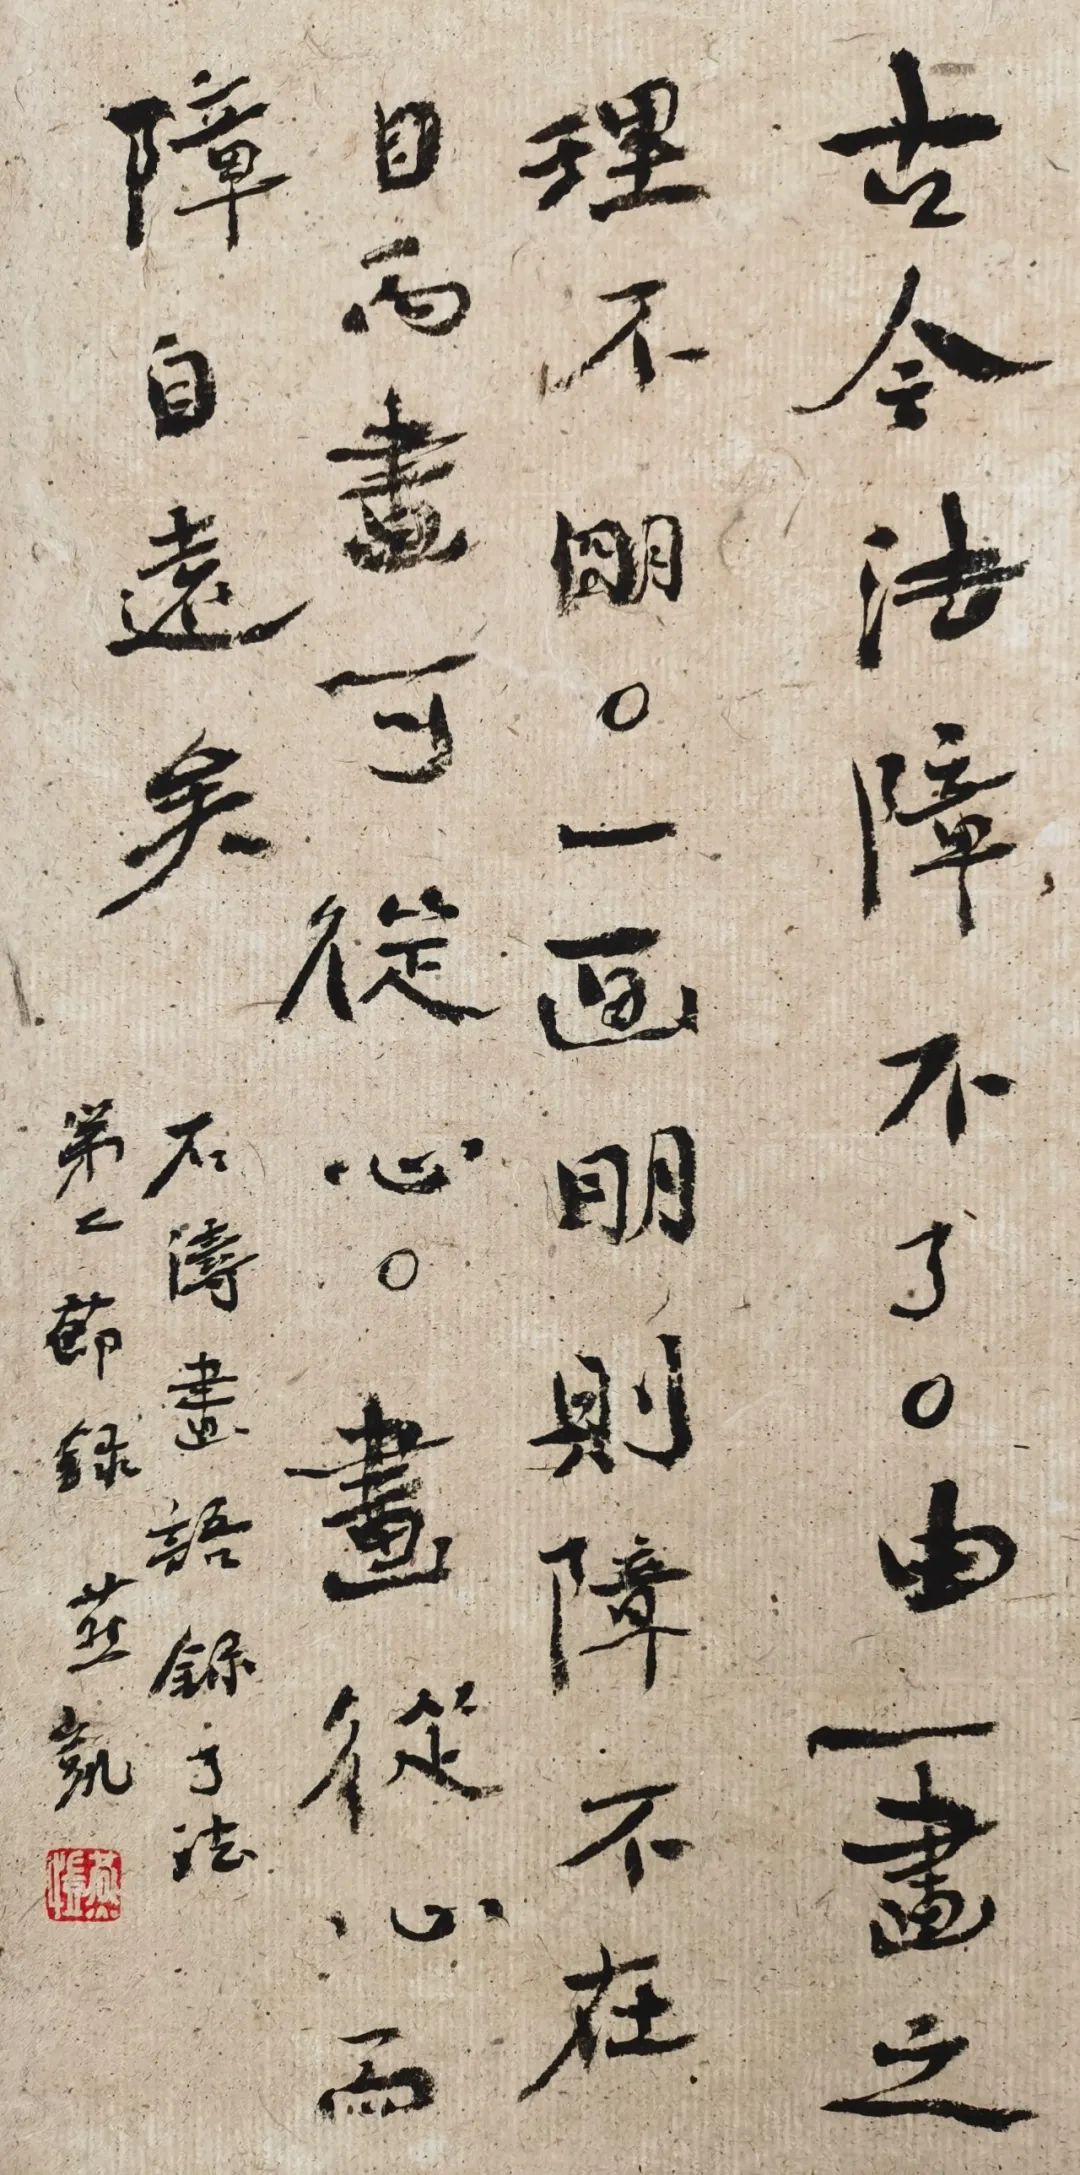 古今法障不了。由一畫之
理不明。一画明則障不在
目而畫可從心。畫從心而
障自遠矣
石濤畫語録了法
第二節録